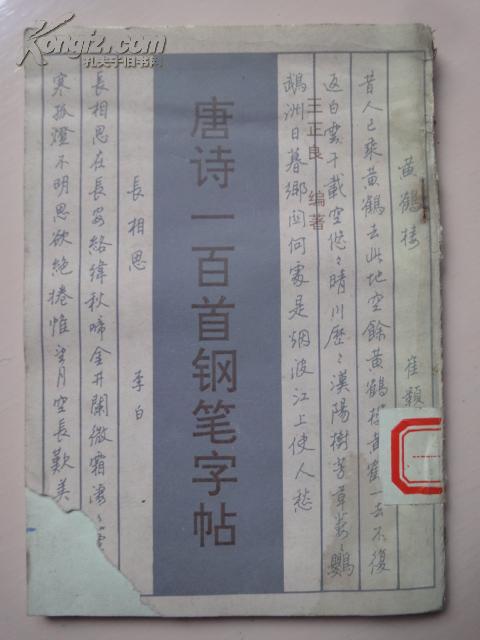 Kongfz.com
孔夫子旧书网
黄鶴楼 崔顥
昔人已乘黄鶴去此地空餘黄鶴楼黄鶴一去不復
返白雲千載空悠々晴川歷々漢陽樹芳草萋々鸚
鵡洲日暮鄉関何處是烟波江上使人愁
王正良 编著
唐诗一百首钢笔字帖
長相思 李白
長相思在長安絡緯秋啼金井闌微霜凄々
寒孤燈不明思欲絶捲帷望月空長歎美